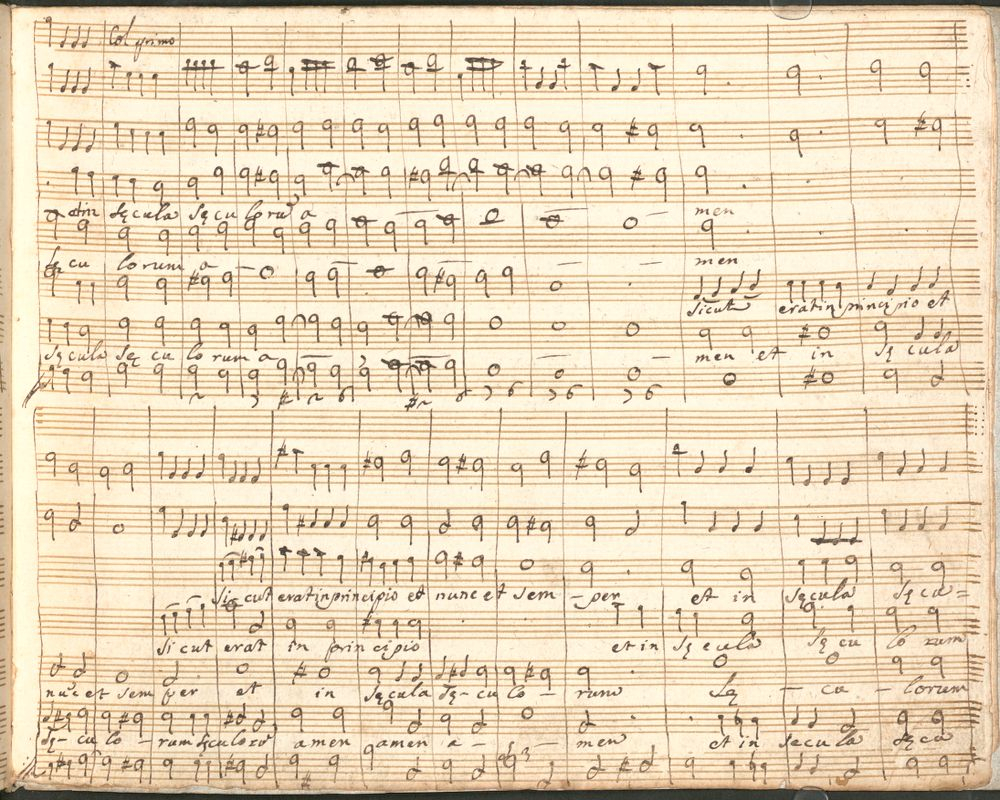 Col primo
et in sęcula sęculorũ a men
sęcu lorum a men
sicut erat in principio et
sęcula sęcu lorum a men et in sęcula
6 6 6 6
Sicut erat in principio et nunc et sem - per et in sęcula sęcu=
Sicut erat in principio et in sęcula sęcu lorum
nũc et sem per et in sęcula sę-culo - rum Sę - cu - lorum
sę- culo - rum sęculorũ amen amen a - men et in secula sęcu